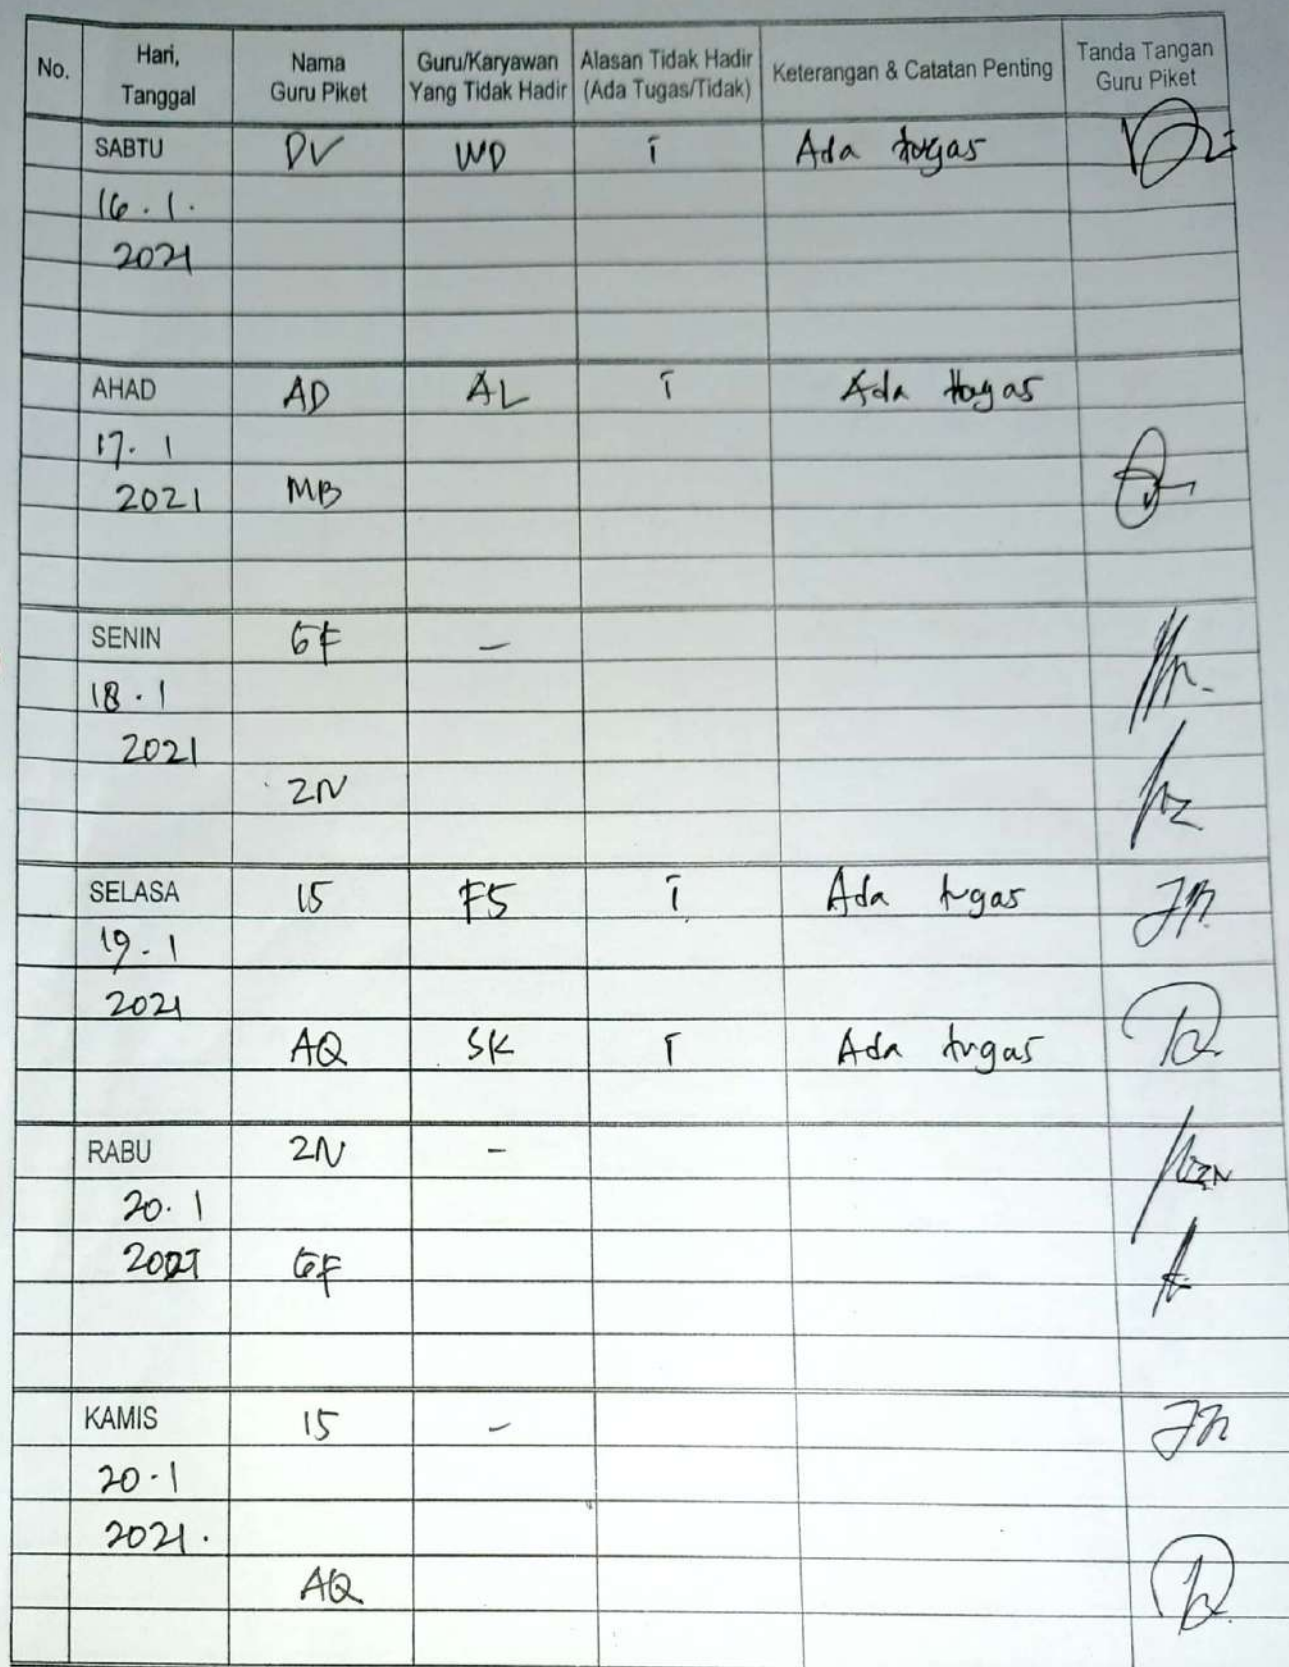 No. Hari, Tanggal Nama Guru Piket Guru/Karyawan Yang Tidak Hadir Alasan Tidak Hadir (Ada Tugas/Tidak) Keterangan & Catatan Penting Tanda Tangan Guru Piket
SABTU DV WD i Ada tugas
16.1.
2021
AHAD AD AL i Ada tugas
17.1
2021 MB
SENIN GF -
18.1
2021
ZN
SELASA 15 F5 i Ada tugas
19.1
2021
AQ SK i Ada tugas
RABU ZN -
20.1
2021 GF
KAMIS 15 -
20.1
2021.
AQ